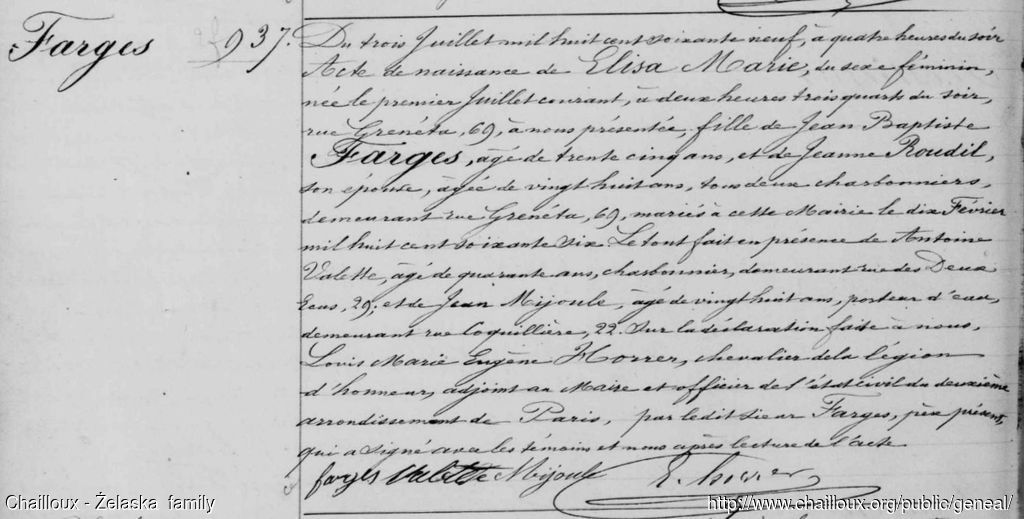 Farges
937.
Du trois Juillet mil huit cent soixante neuf, à quatre heures du soir
Acte de naissance de Elisa Marie, du sexe féminin,
née le premier Juillet courant, à deux heures trois quarts du soir,
rue Grenéta, 69, à nous présentée, fille de Jean Baptiste
Farges, âgé de trente cinq ans, et de Jeanne Roudil,
son épouse, âgée de vingt huit ans, tous deux charbonniers,
demeurant rue Grenéta, 69, mariés à cette Mairie le dix Février
mil huit cent soixante six. Le tout fait en présence de Antoine
Valette, âgé de quarante ans, charbonnier, demeurant rue des Deux
Ecus, 29; et de Jean Mijoule, âgé de vingt huit ans, porteur d'eau,
demeurant rue Coquillière, 22. Sur la déclaration faite à nous,
Louis Marie Eugène Horrer, chevalier de la légion
d'honneur, adjoint au Maire et officier de l'état civil du deuxième
arrondissement de Paris, par ledit sieur Farges, père présent,
qui a signé avec les témoins et nous après lecture de l'acte
farges Valette Mijoule
Chailloux - Želaska family
http://www.chailloux.org/public/geneal/